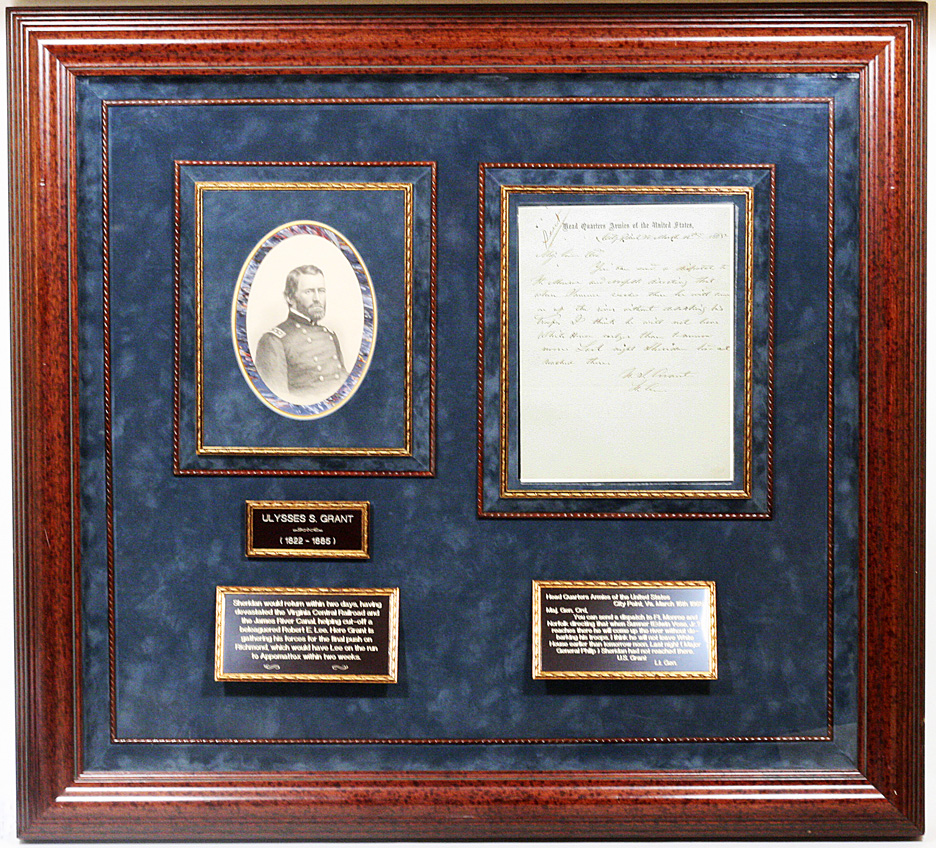 Head Quarters Armies of the United States,
City Point Va March 16th 1865
Maj. Gen. Ord
You can send a dispatch to
Ft. Monroe and Norfolk directing that
when Sumner reaches there he will come
up the river without debarking his
troops. I think he will not leave
White House earlier than tomorrow
noon. Last night Sheridan had not
reached there.
U. S. Grant
Lt. Gen.
ULYSSES S. GRANT
( 1822 - 1885 )
Sheridan would return within two days, having
devastated the Virginia Central Railroad and
the James River Canal, helping cut-off a
beleaguered Robert E. Lee. Here Grant is
gathering his forces for the final push on
Richmond, which would have Lee on the run
to Appomattox within two weeks.
Head Quarters Armies of the United States
City Point, Va. March 16th
Maj. Gen. Ord,
You can send a dispatch to Ft. Monroe and
Norfolk directing that when Sumner
reaches there he will come up the river without de-
barking his troops. I think he will not leave White
House earlier than tomorrow noon. Last night
General Philip Sheridan had not reached there.
U.S. Grant
Lt. Gen.